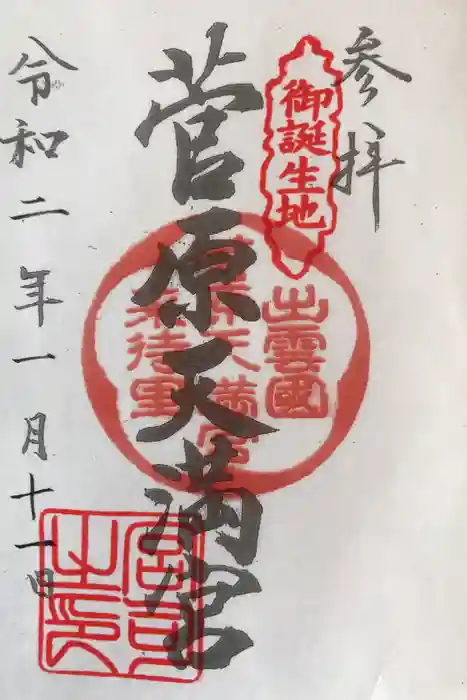 参拝
御誕生地
菅原天満宮
出雲國
菅原天満宮
来待里
令和二年一月十一日
宮司之印